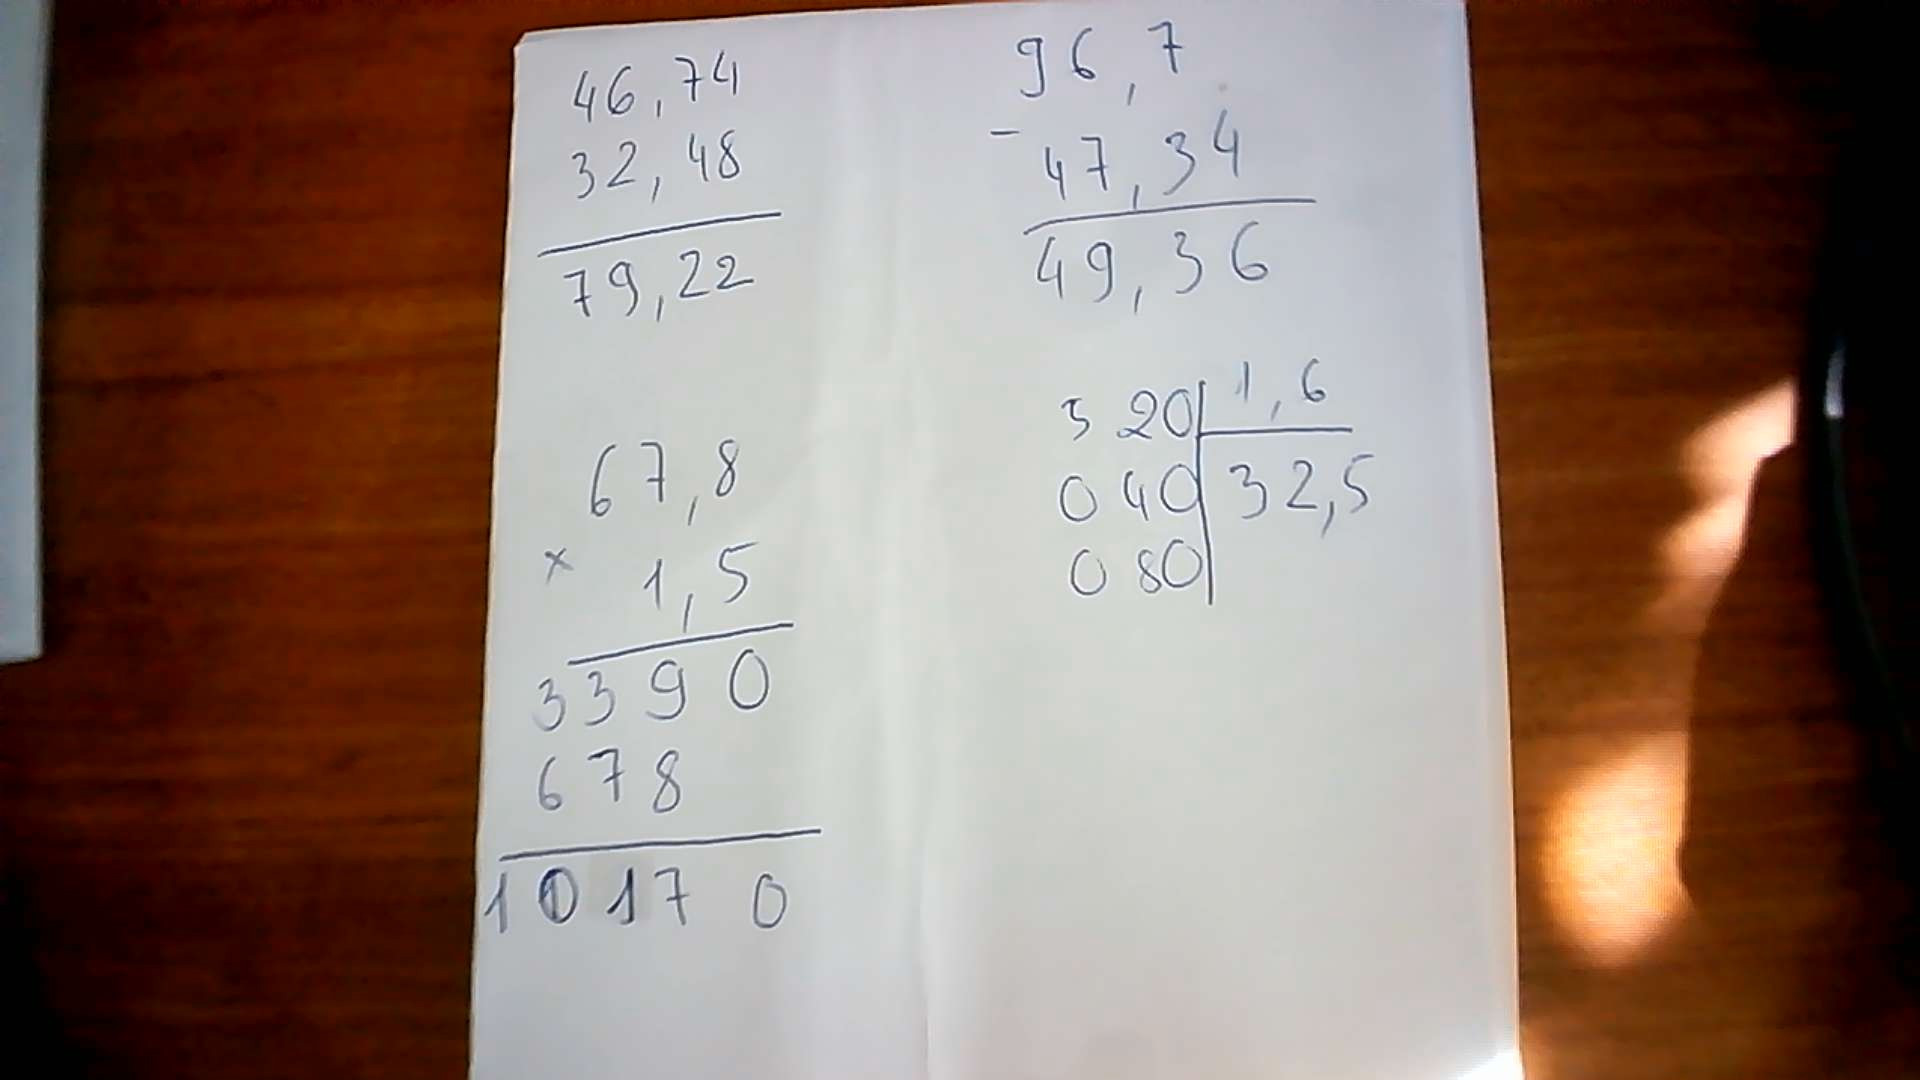 46,74
32,48
79,22
96,7
- 47,34
49,36
67,8
x 1,5
3390
678
10170
320 1,6
040 32,5
080